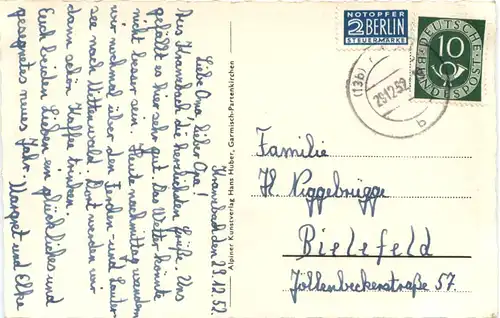 Krannbach den 29.12.52.
Liebe Oma, lieber Opa!
Aus Krannbach die herrlichsten Grüße. Uns
gefällt es hier sehr gut. Das Wetter könnte
nicht besser sein. Heute nachmittag wandern
wir nochmal über den Ferchen- und Lauter-
see nach Mittenwald. Dort werden wir
dann schön Kaffee trinken.
Euch beiden Lieben ein glückliches und
gesegnetes neues Jahr. Margret und Elke
Alpiner Kunstverlag Hans Huber, Garmisch-Partenkirchen
NOTOPFER
2 BERLIN
STEUERMARKE
DEUTSCHE
BUNDESPOST
10
(13b)
29.12.52
b
Familie
H. Niggebrügge
Bielefeld
Jöllenbeckerstraße 57.